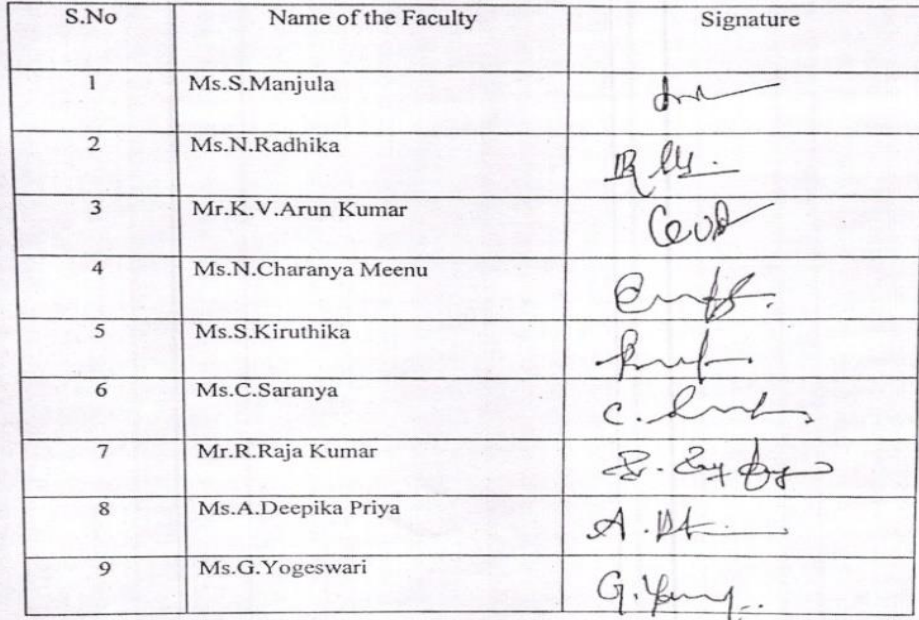 S.No Name of the Faculty Signature
1 Ms.S.Manjula
2 Ms.N.Radhika
3 Mr.K.V.Arun Kumar
4 Ms.N.Charanya Meenu
5 Ms.S.Kiruthika
6 Ms.C.Saranya C.
7 Mr.R.Raja Kumar
8 Ms.A.Deepika Priya A.
9 Ms.G.Yogeswari G.